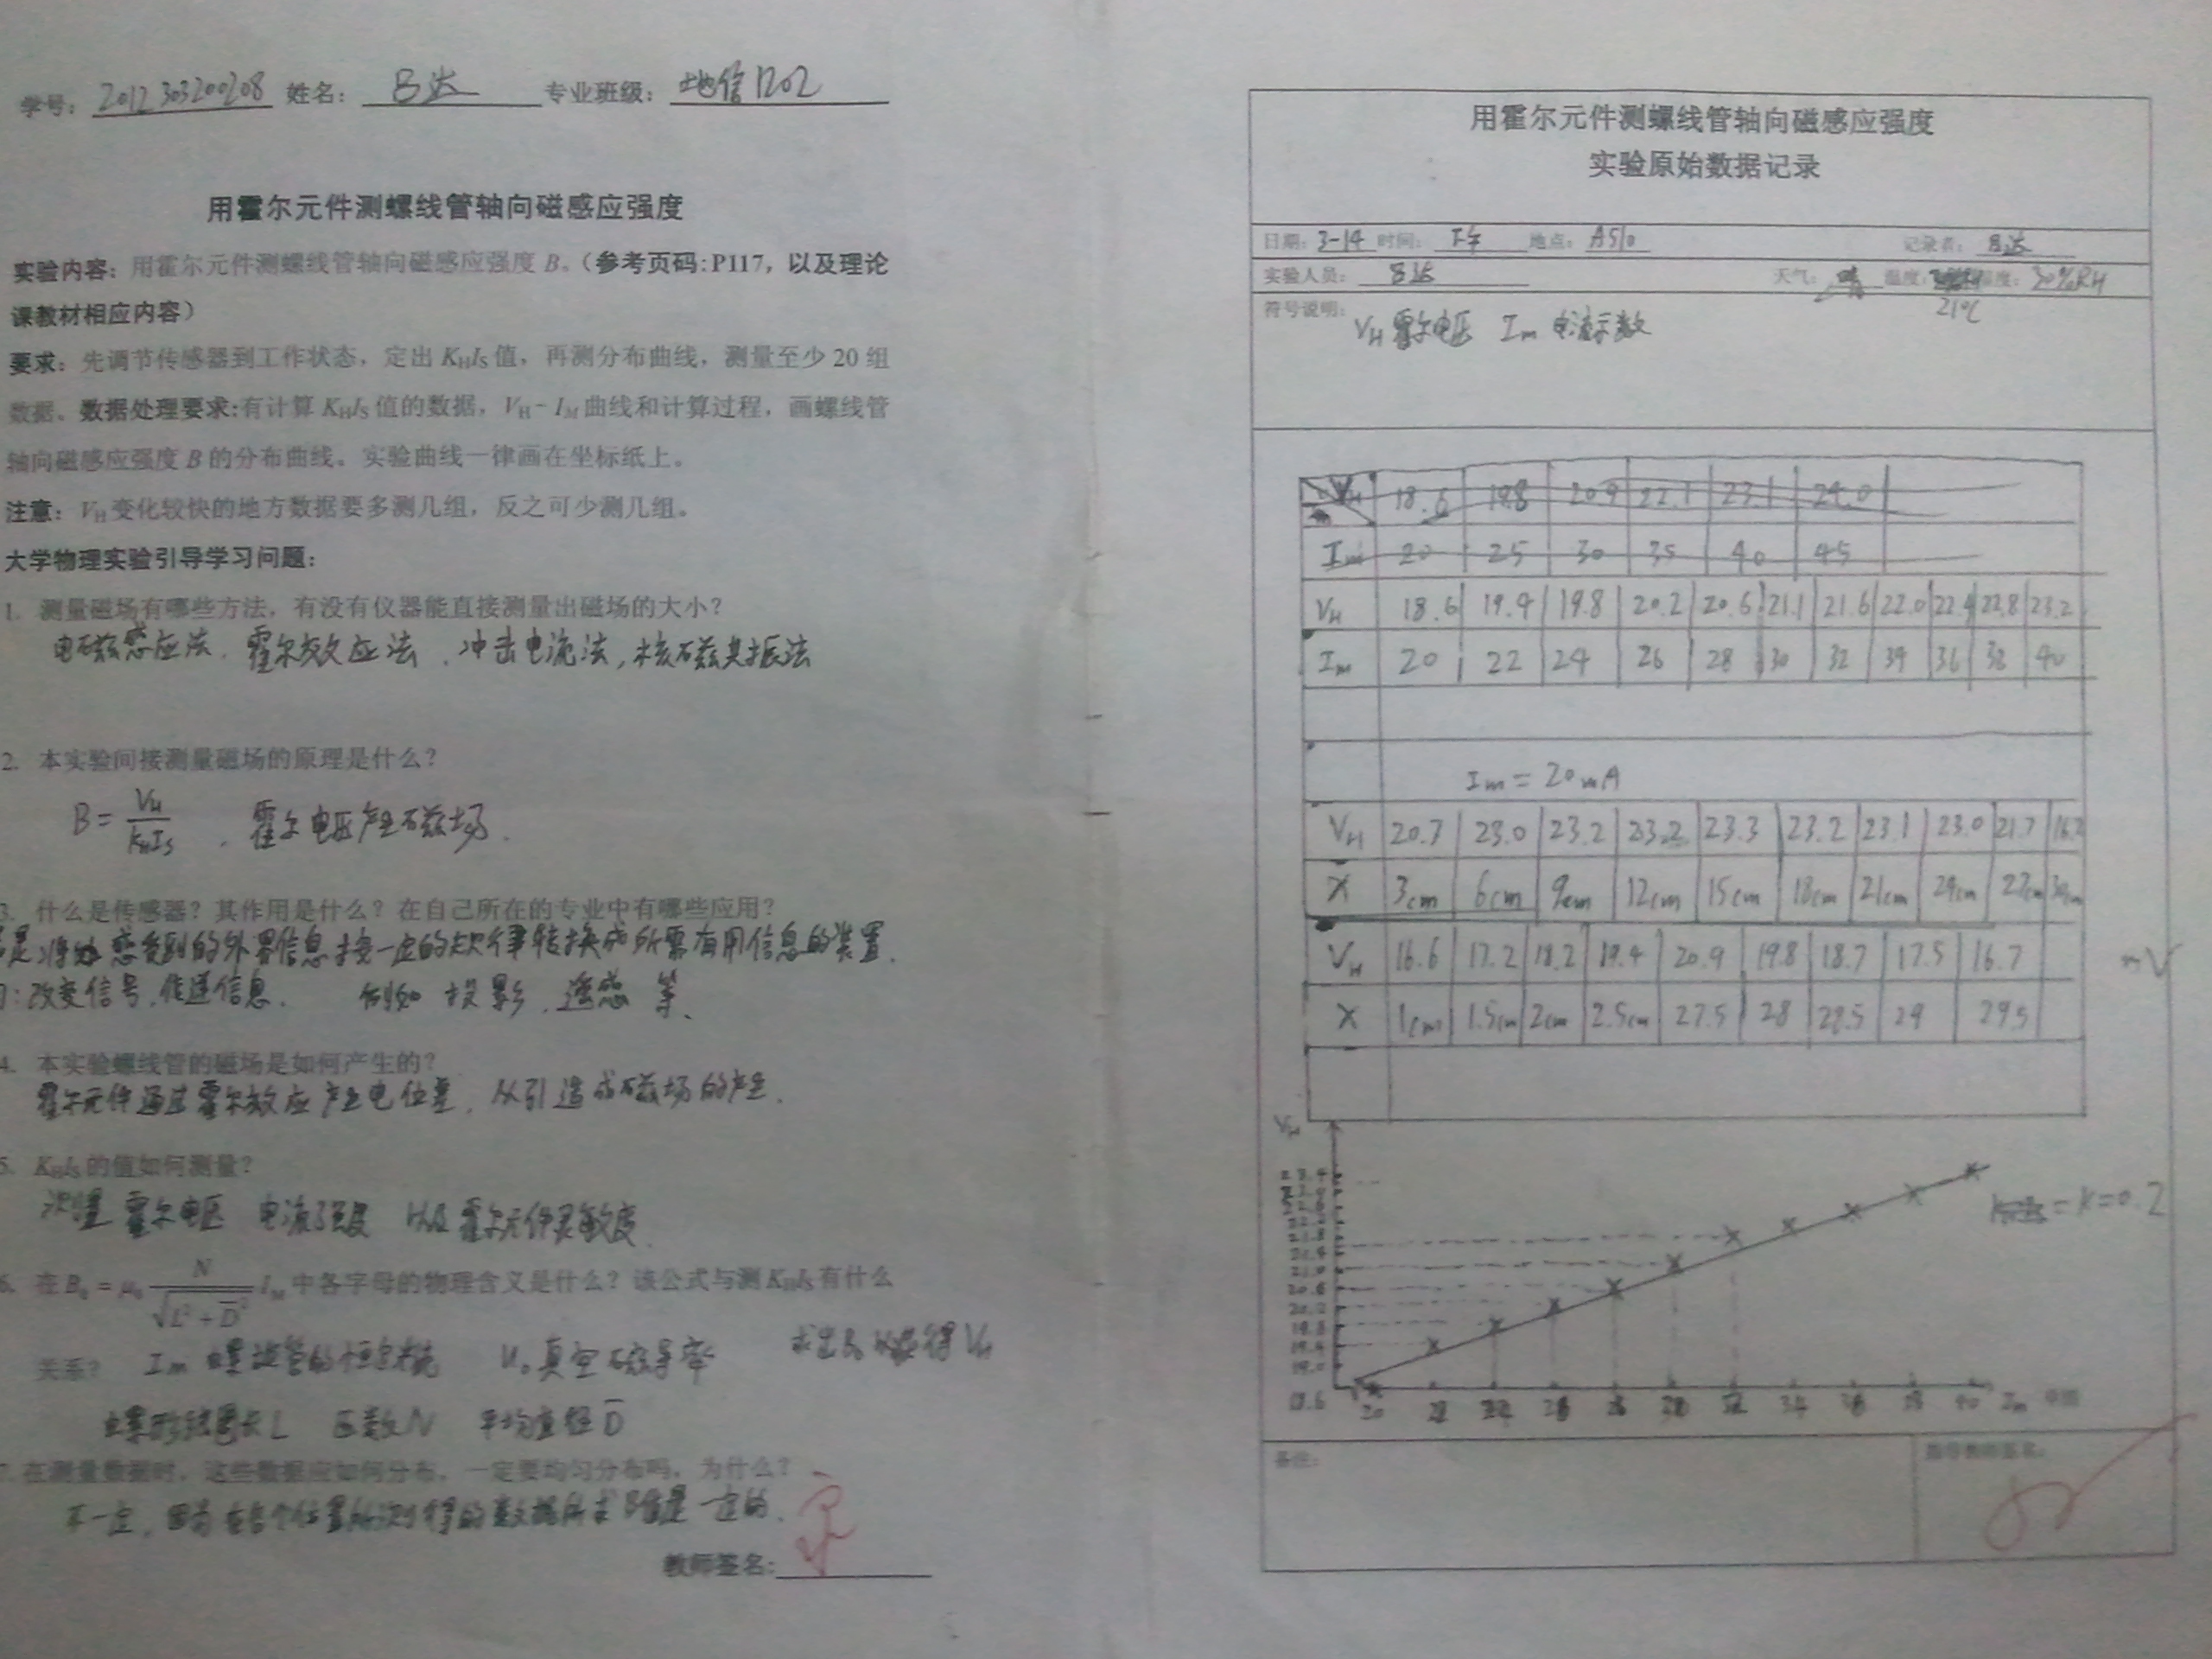 学号: 2012303200208 姓名: 吕达 专业班级: 地信1202
用霍尔元件测螺线管轴向磁感应强度
实验内容: 用霍尔元件测螺线管轴向磁感应强度 B。(参考页码: P117, 以及理论
课教材相应内容)
要求: 先调节传感器到工作状态, 定出 KHIS 值, 再测分布曲线, 测量至少 20 组
数据。数据处理要求: 有计算 KHIS 值的数据, VH - IM 曲线和计算过程, 画螺线管
轴向磁感应强度 B 的分布曲线。实验曲线一律画在坐标纸上。
注意: VH 变化较快的地方数据要多测几组, 反之可少测几组。
大学物理实验引导学习问题:
1. 测量磁场有哪些方法, 有没有仪器能直接测量出磁场的大小?
电磁感应法, 霍尔效应法, 冲击电流法, 核磁共振法
2. 本实验间接测量磁场的原理是什么?
B = VH / KHIS , 霍尔电压产生磁场.
3. 什么是传感器? 其作用是什么? 在自己所在的专业中有哪些应用?
是将 感受到的外界信息按一定的规律转换成所需有用信息的装置.
: 改变信号, 传递信息. 例如 投影, 遥感 等.
4. 本实验螺线管的磁场是如何产生的?
霍尔元件通过霍尔效应产生电位差, 从引造成磁场的产生.
5. KHIS 的值如何测量?
测量 霍尔电压 电流强度 以及 霍尔元件灵敏度.
6. 在 B0 = μ0 N / √(L² + D̄²) IM 中各字母的物理含义是什么? 该公式与测 KHIS 有什么
关系? Im 螺线管的恒定 u0 真空磁导率 求出B0 得 VH
螺形线圈长 L 匝数 N 平均直径 D̄
7. 在测量数据时, 这些数据应如何分布, 一定要均匀分布吗, 为什么?
不一定, 因为在各个位置所测得的数据所求 B值是一定的.
教师签名:
用霍尔元件测螺线管轴向磁感应强度
实验原始数据记录
日期: 3-14 时间: 下午 地点: A510 记录者: 吕达
实验人员: 吕达 天气: 晴 温度: 21℃ 湿度: 30%RH
符号说明: VH 霍尔电压 Im 电流示数
VH 18.6 19.8 20.9 22.1 23.1 24.0
Im 20 25 30 35 40 45
VH 18.6 19.4 19.8 20.2 20.6 21.1 21.6 22.0 22.4 22.8 23.2
Im 20 22 24 26 28 30 32 34 36 38 40
Im = 20mA
VH 20.7 23.0 23.2 23.2 23.3 23.2 23.1 23.0 21.7
X 3cm 6cm 9cm 12cm 15cm 18cm 21cm 24cm 27cm 30cm
VH 16.6 17.2 18.2 19.4 20.9 19.8 18.7 17.5 16.7 mV
X 1cm 1.5cm 2cm 2.5cm 27.5 28 28.5 29 29.5
VH
= K=0.2
20.6
20.2
19.8
19.4
19.0
18.6 20 40 Im
备注: 指导教师签名: